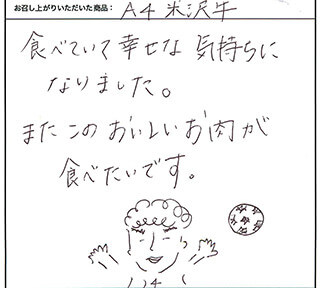 お召し上がりいただいた商品： A4 米沢牛
食べていて幸せな気持ちに
なりました。
またこのおいしいお肉が
食べたいです。